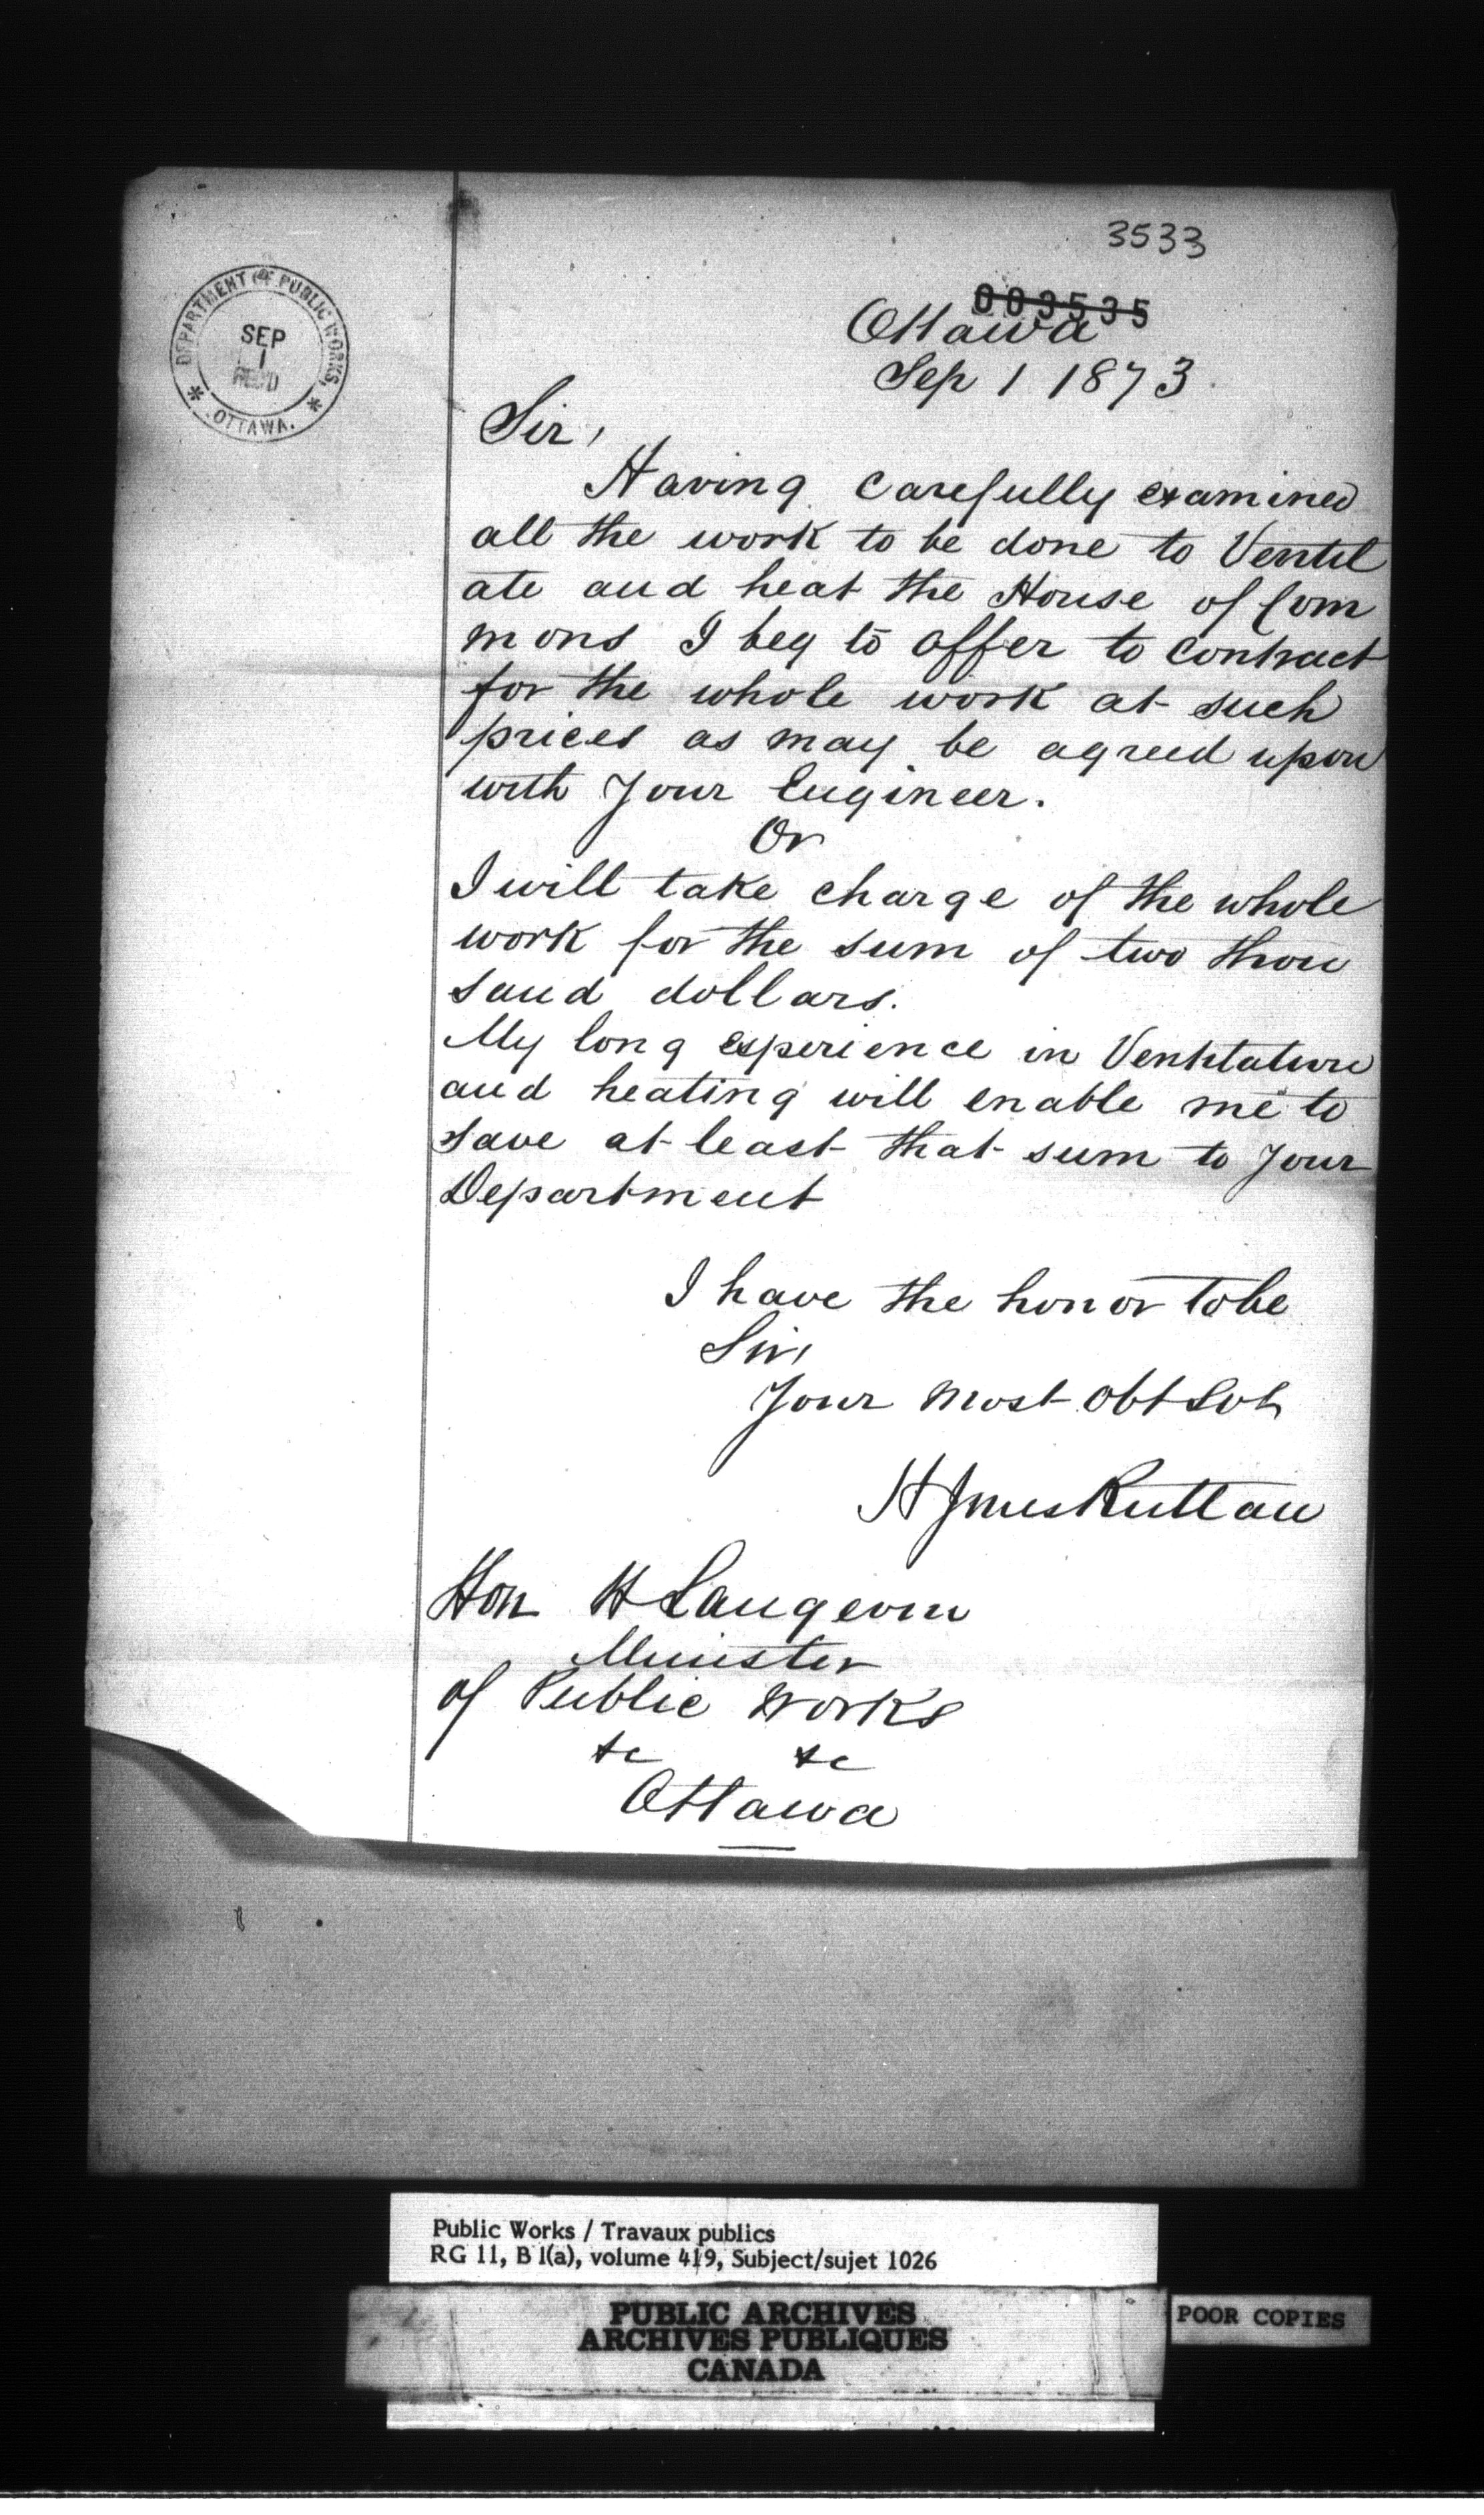 3533
003535
DEPARTMENT OF PUBLIC WORKS,
SEP
1
REC'D
OTTAWA.
Ottawa
Sep 1 1873
Sir,
Having carefully examined
all the work to be done to Ventil
ate and heat the House of Com
mons I beg to offer to contract
for the whole work at such
prices as may be agreed upon
with your Engineer.
Or
I will take charge of the whole
work for the sum of two thou
sand dollars.
My long experience in Ventilation
and heating will enable me to
save at least that sum to your
Department
I have the honor to be
Sir,
Your most obt Svt
H Jones Ruttan
Hon H Langevin
Minister
of Public Works
&c &c
Ottawa
Public Works / Travaux publics
RG 11, B 1(a), volume 419, Subject/sujet 1026
PUBLIC ARCHIVES
ARCHIVES PUBLIQUES
CANADA
POOR COPIES